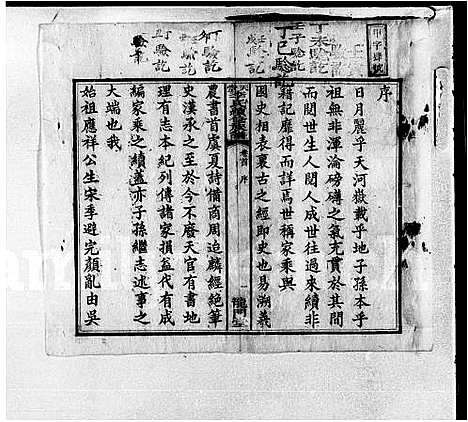 甲字號
丁未驗訖
壬子驗訖
丁巳驗訖
丁驗訖
序
日月麗乎天河嶽載乎地子孫本乎
祖無非渾淪磅礴之氣充貫於其間
而閱世生人閱人成世往過來續非
籍記靡得而詳焉世稱家乘與
國史相表裏古之經即史也易溯羲
卷首 序 一
農書首虞夏詩備商周迨麟經絶筆
史漢承之至於今不廢天官有書地
理有志本紀列傳諸家損益代有成
編家乘之續蓋亦子孫繼志述事之
大端也我
始祖應祥公生宋季避完顏亂由吳